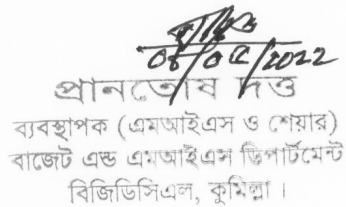 ০৮/০৫/2022
প্রানতোষ দত্ত
ব্যবস্থাপক (এমআইএস ও শেয়ার)
বাজেট এন্ড এমআইএস ডিপার্টমেন্ট
বিজিডিসিএল, কুমিল্লা।